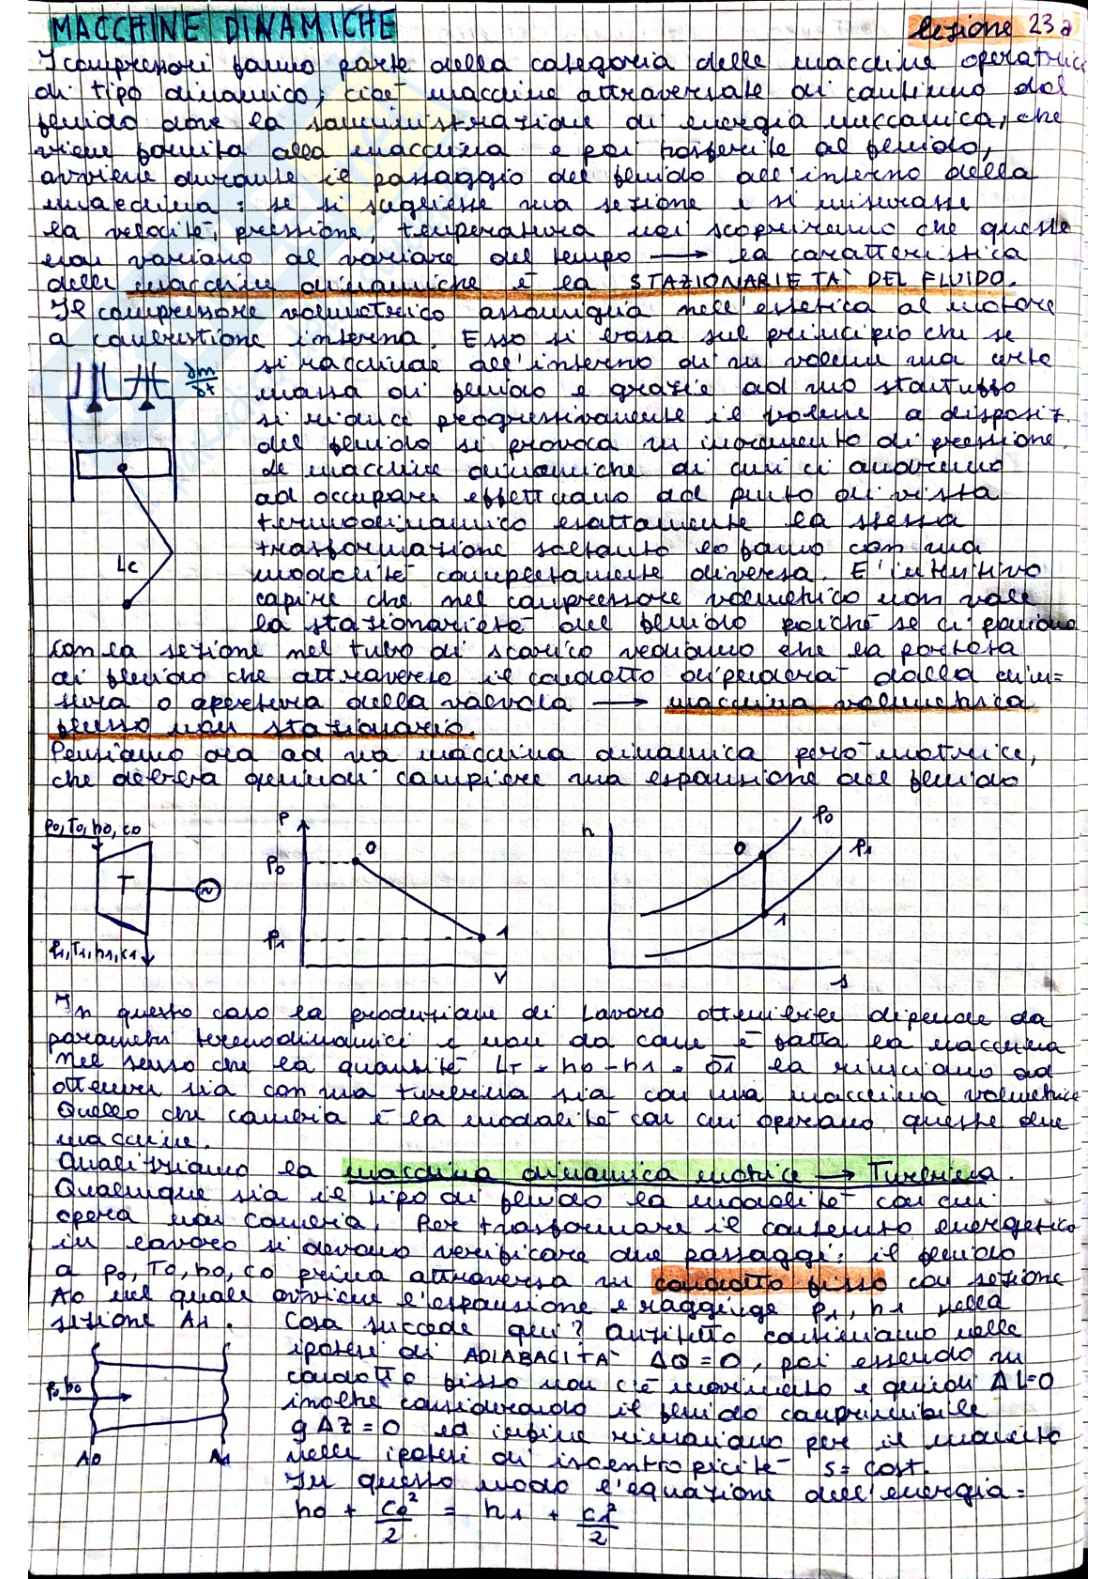 MACCHINE DINAMICHE
lezione 23a
I compressori fanno parte della categoria delle macchine operatrici
di tipo dinamico, cioè macchine attraversate di continuo dal
fluido dove la somministrazione di energia meccanica, che
viene fornita alla macchina e poi trasferite al fluido,
avviene durante il passaggio del fluido all'interno della
macchina: se si scegliesse una sezione e si misurasse
la velocità, pressione, temperatura noi scopriremmo che queste
non variano al variare del tempo → la caratteristica
delle macchine dinamiche è la STAZIONARIETA' DEL FLUIDO.
Il compressore volumetrico assomiglia nell'estetica al motore
a combustione interna. Esso si basa sul principio che se
si racchiude all'interno di un volume una certa
massa di fluido e grazie ad uno stantuffo
si riduce progressivamente il volume a disposiz.
del fluido si provoca un incremento di pressione.
Le macchine dinamiche di cui ci andremo
ad occupare effettuano dal punto di vista
termodinamico esattamente la stessa
trasformazione soltanto lo fanno con una
modalità completamente diversa. E' intuitivo
capire che nel compressore volumetrico non vale
la stazionarietà del fluido poiché se ci poniamo
con la sezione nel tubo di scarico vediamo che la portata
di fluido che attraversa il condotto dipenderà dalla chiu=
sura o apertura della valvola → macchina volumetrica
flusso non stazionario.
∂m/∂t
Lc
Pensiamo ora ad una macchina dinamica però motrice,
che dovrà quindi compiere una espansione del fluido
p0, T0, h0, c0
T
p1, T1, h1, c1
P
p0
p1
0
1
V
h
0
1
p0
p1
s
In questo caso la produzione di lavoro ottenibile dipende da
parametri termodinamici e non da come è fatta la macchina
nel senso che la quantità LT = h0 - h1 = 01 la riusciamo ad
ottenere sia con una turbina sia con una macchina volumetrica
Quello che cambia è la modalità con cui operano queste due
macchine.
Analizziamo la macchina dinamica motrice → Turbina.
Qualunque sia il tipo di fluido la modalità con cui
opera non cambia. Per trasformare il contenuto energetico
in lavoro si devono verificare due passaggi: il fluido
a p0, T0, h0, c0 prima attraversa un condotto fisso con sezione
A0 nel quale avviene l'espansione e raggiunge p1, h1 nella
sezione A1. Cosa succede qui? Anzitutto consideriamo nelle
ipotesi di ADIABACITA' ΔQ=0, poi essendo un
condotto fisso non c'è movimento e quindi ΔL=0
inoltre considerando il fluido comprimibile
gΔz=0 ed infine rimaniamo per il momento
nelle ipotesi di isoentropicità s=cost.
In questo modo l'equazione dell'energia:
h0 + c0²/2 = h1 + c1²/2
p0, h0
A0
A1